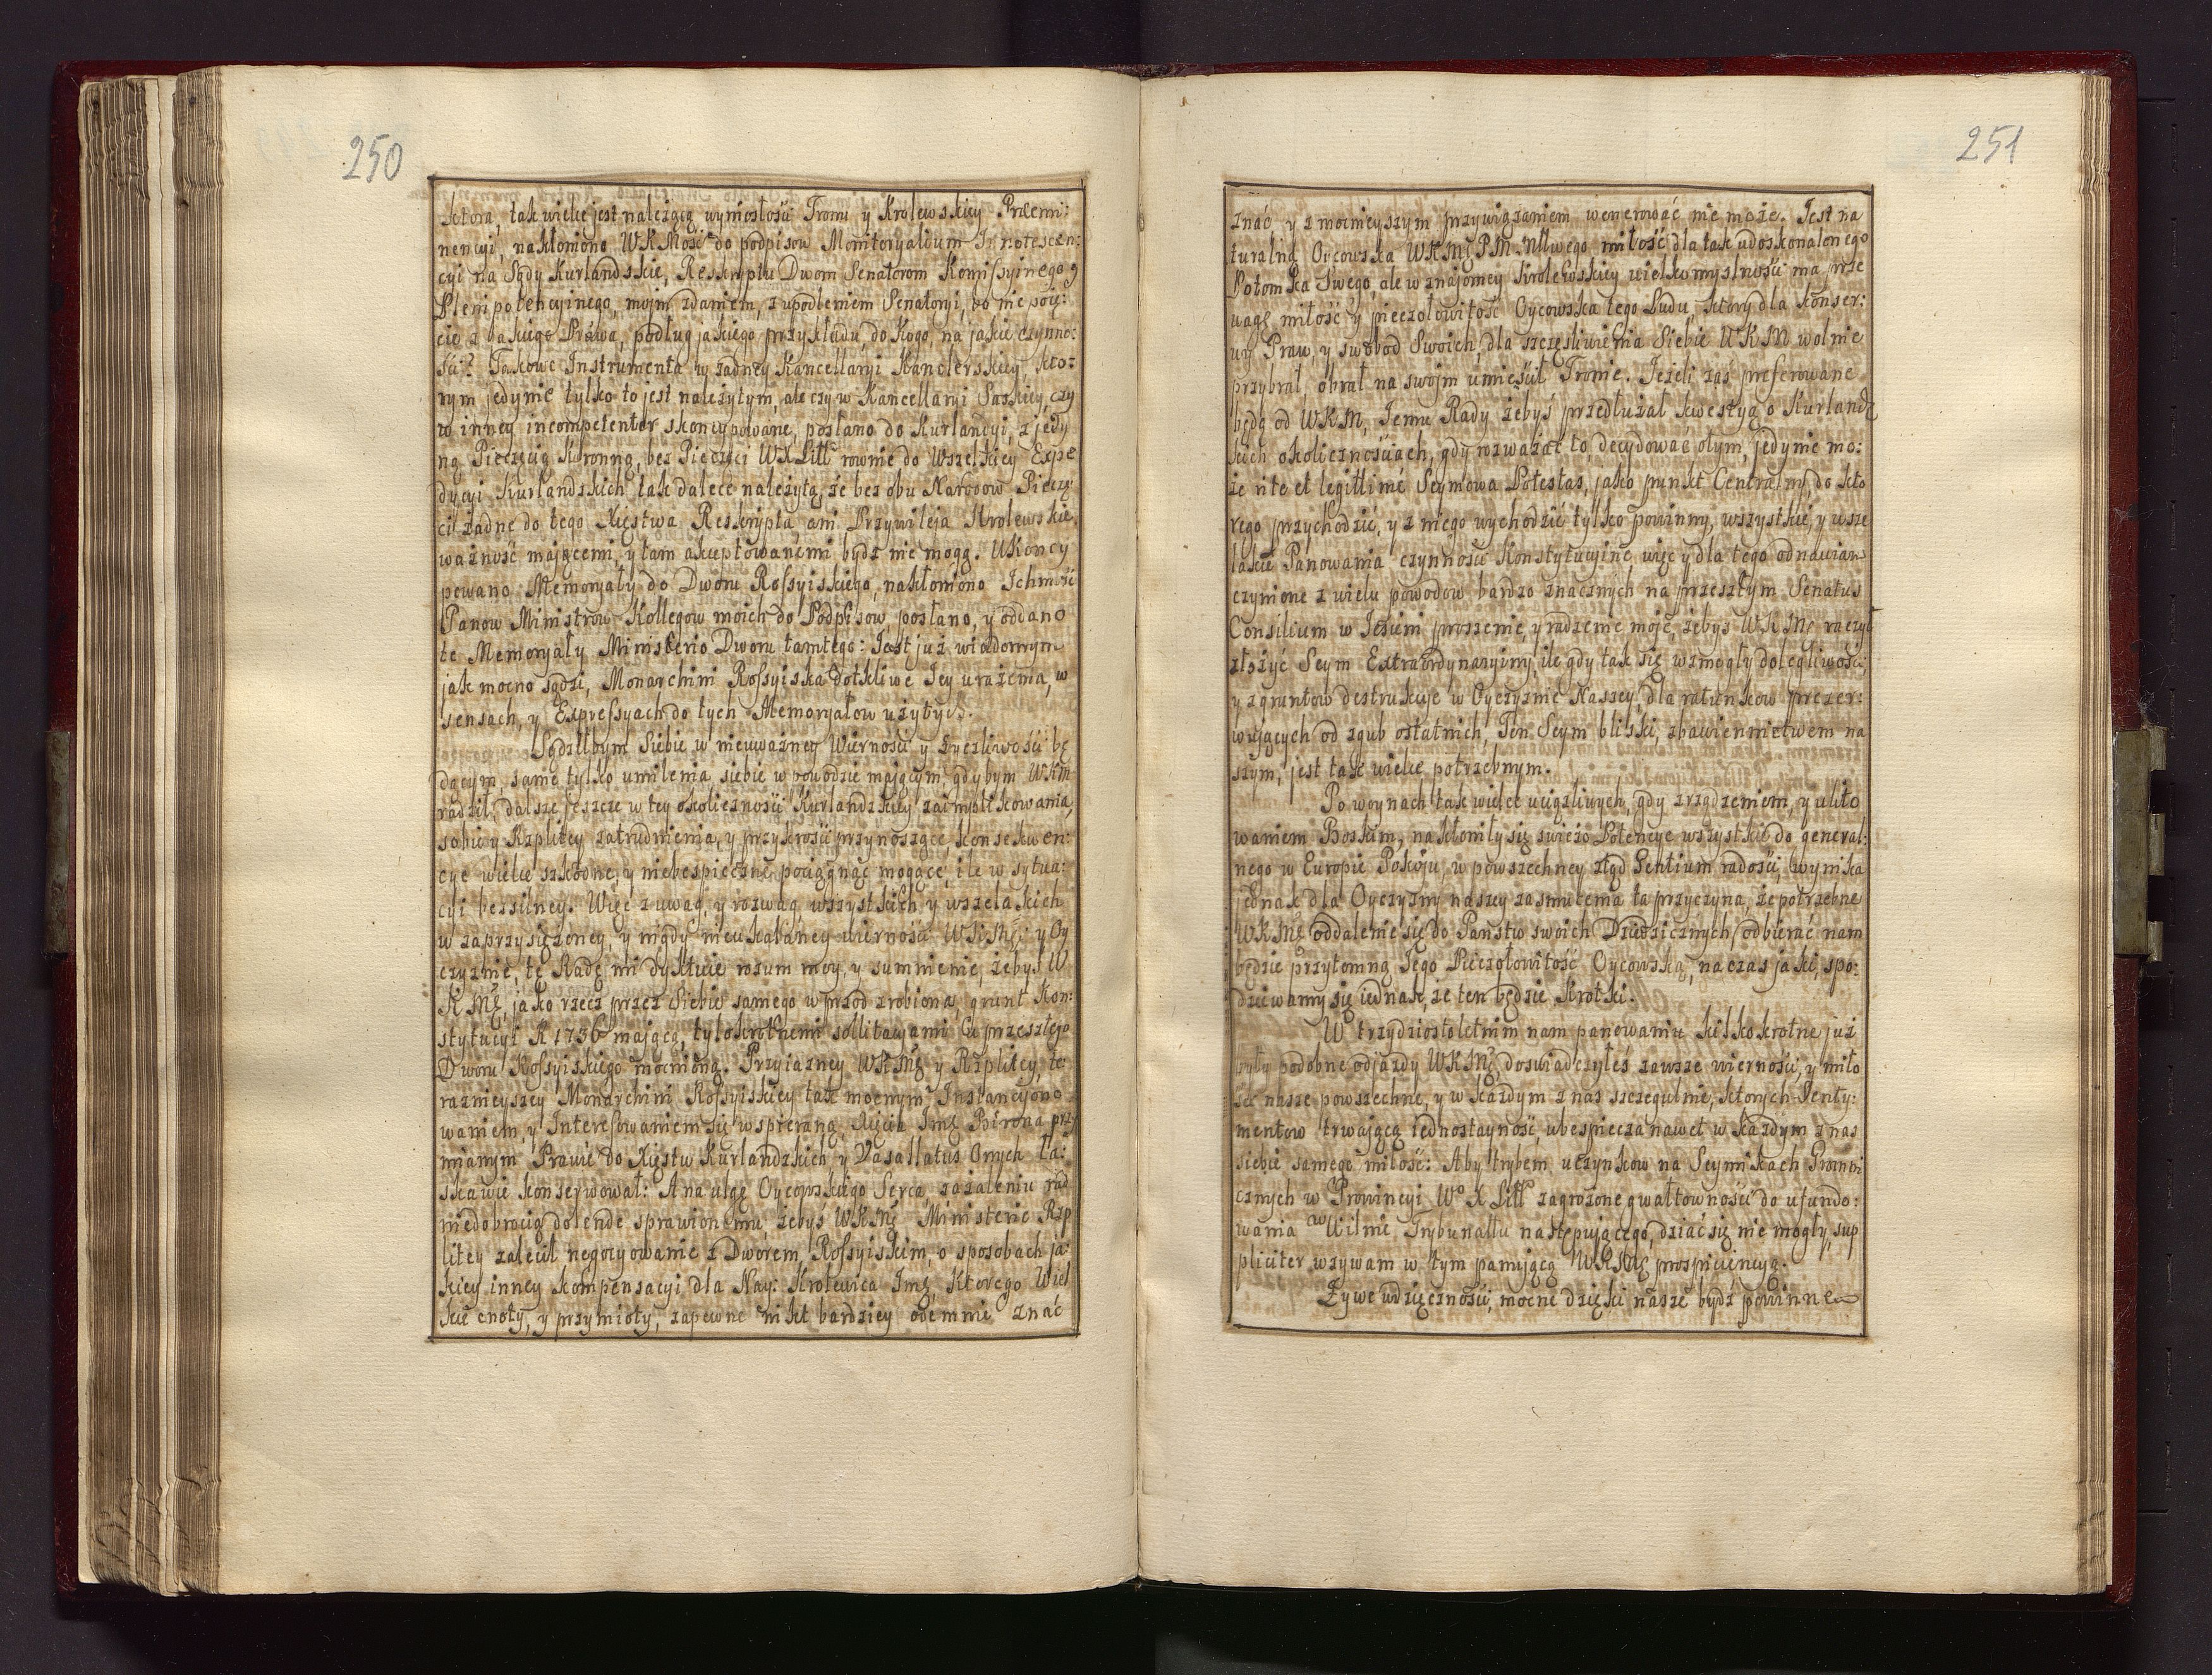 250
ktora, tak wielce jest należącą wyniosłości Tronu y Krolewskiey Præemi:
nencyi, nakłoniono WKMość do podpisow Monitoryalium Innotescen:
cyi na Sądy Kurlandskie, Reskryptu Dwom Senatorom Komissyinego,
Plenipotencyinego, moim zdaniem, z upodleniem Senatoryi, bo nie poię:
cie z jakiego Prawa, podług jakiego przykładu, do Kogo, na jakie czynno:
ści? Takowe Instrumenta w żadney Kancellaryi Kanclerskiey, kto:
rym jedynie tylko to jest należytym, ale czy w Kancellaryi Saskiey, czy
w inney incompetenter skoncypowane, posłano do Kurlandyi, z jedy
ną Pieczęcią Koronną, bez Pieczęci WXLitt rownie do Wszelkiey Expe
dycyi Kurlandskich tak dalece należytą, że bez obu Narodow Pieczę
ci żadne do tego Xięstwa Reskrypta ani Przywileja Krolewskie,
ważność mającemi, y tam akceptowanemi bydź nie mogą. Ukoncy
powano Memoryały do Dworu Rossyiskiego, nakłoniono Ichmość
Panow Ministrow Kollegow moich do Podpisow, posłano, y oddano
te Memoryały Ministerio Dworu tamtego: Jest już wiadomym
jak mocno sądzi, Monarchini Rossyiska dotkliwe Jey urażenia, w
sensach, y Expressyach do tych Memoryałow użytych.
Sądziłbym Siebie w nieuważney Wierności y życzliwości bę
dącym, same tylko umilenia siebie w powodzie mającym, gdybym WKM
radził, dalsze jeszcze w tey okoliczności Kurlandzkiey zaimplikowania,
sobie y Rzplitey zatrudnienia, y przykrości przynoszące, konsekwen:
cye wielce szkodne, y niebespieczne pociągnąć mogące, ile w sytua:
cyi bezsilney. Więc z uwag, y rozwag wszystkich, y wszelakich
w zaprzysiężoney, y nigdy nieukalaney wierności WKMci y Oy
czyznie, tę Radę mi dyktuie rozum moy, y sumnienie, żebyś W
KMć, jako rzecz przez Siebie samego w przod zrobioną, grunt Kon:
stytucyi R 1736 mającą, tylokrotnemi sollicitacyami Cu przeszłego
Dworu Rossyiskiego mocnioną. Przyiazney WKMć y Rzplitey, te
raznieyszey Monarchini Rossyiskiey tak mocnym Instancyono
waniem, y Interessowaniem się wspieraną, Xięcia Imć Birona przy
mianym Prawie do Xięstw Kurlandzkich, y Vasallatus Onych ła:
skawie konserwował: A na ulgę Oycowskiego Serca, zażaleniu nad
niedobrocią dolende sprawionemu żebyś WKMć Ministerio Rzp
litey zalecił negocyowanie z Dworem Rossyiskim, o sposobach ja:
kiey inney kompensacyi dla Nay: Krolewica Imć, Ktorego Wiel
kie cnoty, y przymioty, zapewne nikt bardziey odemnie znać
251
znać y z mocnieyszym przywiązaniem wenerować nie może. Jest na
turalną Oycowska WKMć PM Nłłwego miłość dla tak udoskonalonego
Potomka Swego, ale w znajomey Krolewskiey wielkomyslności ma prze
uagę miłość y pieczołowitość Oycowska tego Ludu, ktory dla konser:
uy Praw, y swobod Swoich, dla szczęśliwienia Siebie WKM wolnie
przybrał, obrał na swojm umieścił Tronie. Jeżeli zaś preferowane
będą od WKM, Jemu Rady żebyś przedłużał kwestyą o Kurlandz
kich okolicznościach, gdy rozważać to, decydować o tym, jedynie mo:
że rite et legittimé Seymowa Potestas, jako punkt Centralny, do kto
rego przychodzić, y z niego wychodzić tylko powinny, wszystkie, y wsze
lakie Panowania czynności Konstytucyine, więc y dla tego odnawiam
czynione z wielu powodow bardzo znacznych na przeszłym Senatus
Consilium w Jesieni proszenie, y radzenie moje, żebyś WKMć raczył
złożyć Seym Extraordynaryiny, ile gdy tak się wzmogły dolegliwości,
y z gruntow destrukcye w Oyczyznie Naszey, dla ratunkow prezer:
wujących od zgub ostatnich, Ten Seym bliski, zbawiennictwem na
szym, jest tak wielce potrzebnym.
Po woynach tak wielce uciążliwych, gdy zrządzeniem, y ulito
waniem Boskim, nakłoniły się świeżo Potencye wszystkie do general:
nego w Europie Pokoju, w powszechney ztąd Gentium radości, wynika
jednak dla Oyczyzny naszey zasmucenia ta przyczyna, że potrzebne
WKMć oddalenie się do Państw swoich Dziedzicznych, odbierać nam
będzie przytomną Jego Pieczołowitość Oycowską, na czas jaki, spo:
dziewamy się jednak, że ten będzie krotki.
W trzydziostoletnim nam panowaniu kilkokrotne już
były podobne odjazdy WKMć, doswiadczyłeś zawsze wierności, y miło
ści nasze powszechne, y w każdym z nas szczegulnie, ktorych Senty:
mentow trwającą jednostayność, ubespiecza nawet w każdym z nas
siebie samego miłość: Aby trybem uczynkow na Seymikach Gromni
cznych w Prowincyi Wo X Litto zagrożone gwałtowności do ufundo:
wania w Wilnie Trybunału następującego, dziać się nie mogły, sup
pliciter wzywam w tym panującą WKMć prospiciencyą.
Żywe wdzięczności, mocne dzięki nasze bydź powinne